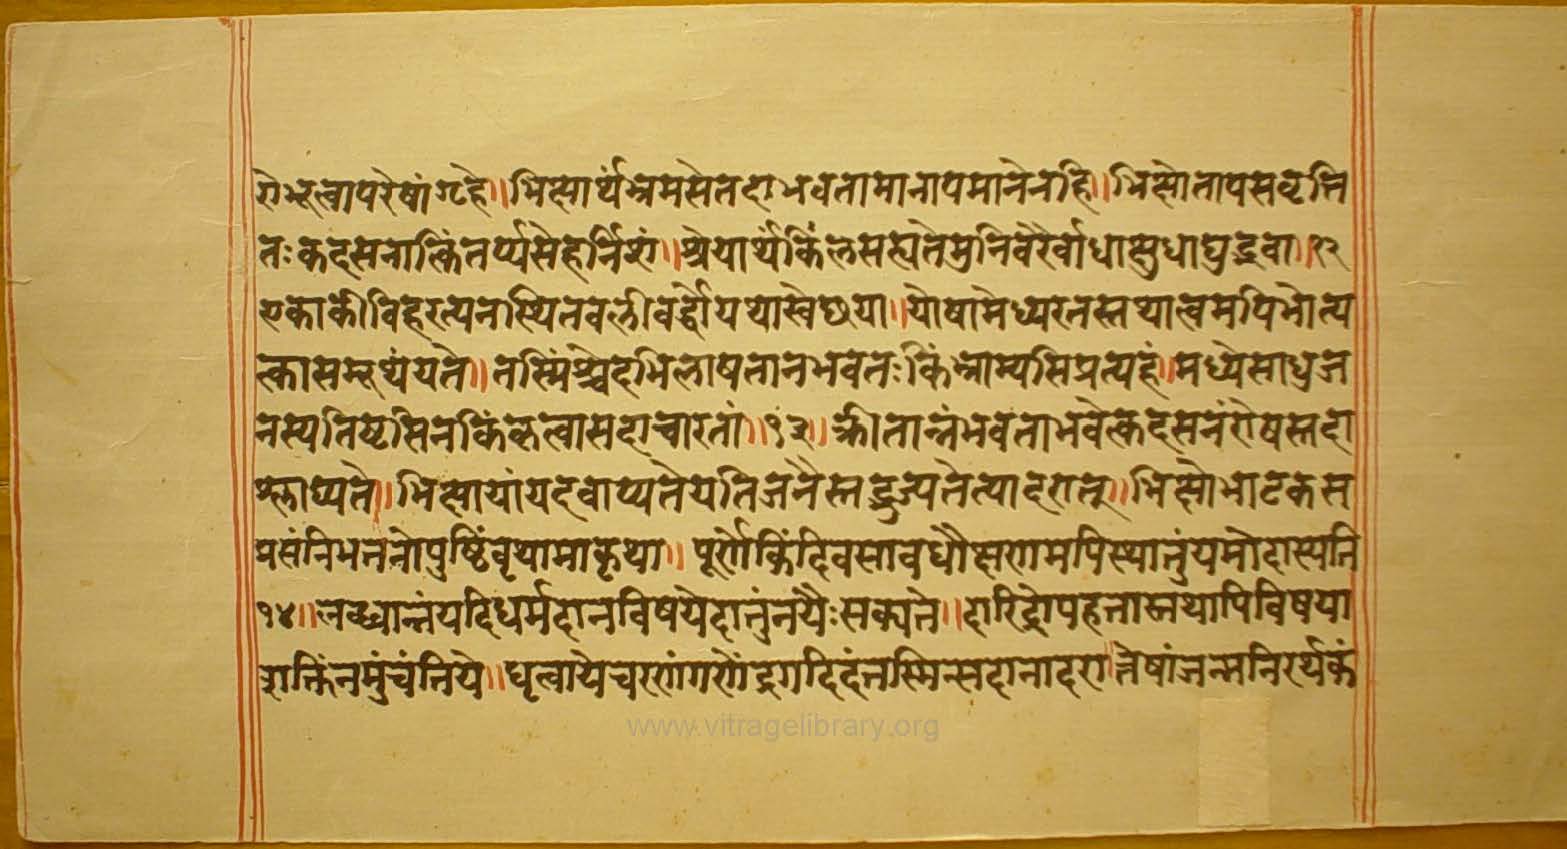 रोभूत्वापरेषांगृहे॥भिक्षार्थंभ्रमसेतदाभवतामानापमानेनहि॥भिक्षोतापसवृत्ति
तःकदसनात्किंतर्प्यसेहर्निशं॥श्रेयार्थंकिंलसह्यतेमुनिवरैर्वाधाक्षुधाद्युद्भवा॥१२
एकाकीविहरत्यनस्थितवलीवर्द्दोयथास्वेछया॥योषामेध्यरतस्तथात्वमपिभोत्य
त्कासमूथंयते॥तस्मिंश्चेदभिलाषतानभवतःकिंभ्राम्यसिप्रत्यहं।मध्येसाधुज
नस्यतिष्टसिनकिंकत्वासदाचारतां॥१३॥क्रीतान्नंभवताभवेत्कदसनंरोषस्तदा
श्लाघ्यते॥भिक्षायांयदवाप्यतेयतिजनैस्तद्भुज्यतेत्यादरात्॥भिक्षोभाटकस
प्रसंनिभतनोपुष्ठिंवृथामाकृथा॥पूर्णेकिंदिवसावधौक्षणमपिस्थातुंयमोदास्यति
१४॥लब्ध्वान्नंयदिधर्मदानविषयेदातुंनयैःसक्यते॥दारिद्रोपहतास्तथापिविषया
शक्तिंनमुंचंतिये॥धृत्वायेचरणंगणेंद्रगदिदंतस्मिन्सदानादरा।तेषांजन्मनिरर्थकं
www.vitragelibrary.org